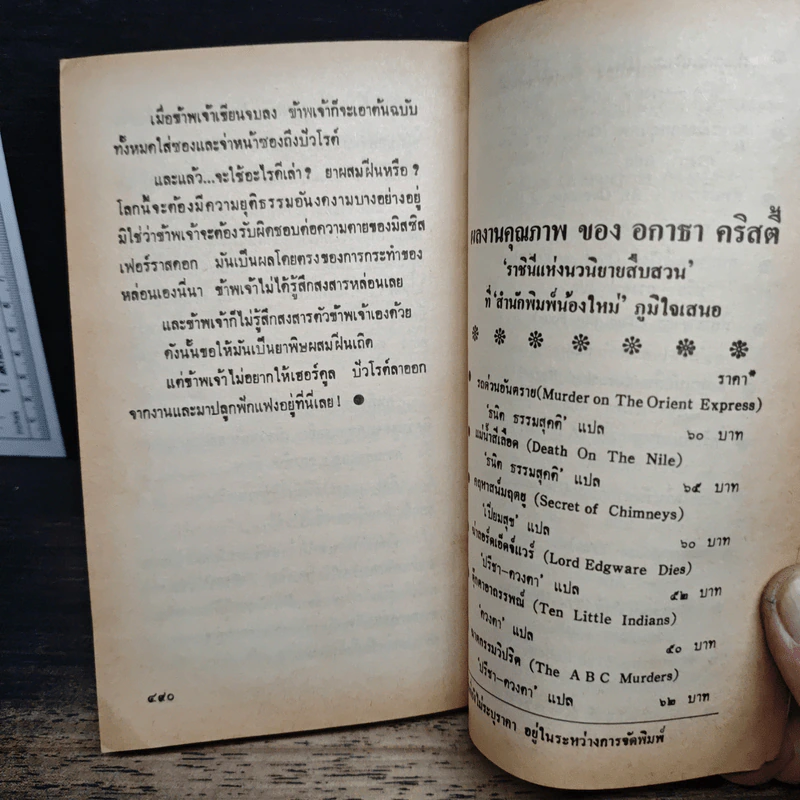 เมื่อข้าพเจ้าเขียนจบลง ข้าพเจ้าก็จะเอาต้นฉบับ
ทั้งหมดใส่ซองและจ่าหน้าซองถึงปัวโรต์
และแล้ว...จะใช้อะไรดีเล่า? ยาผสมฝิ่นหรือ?
โลกนี้จะต้องมีความยุติธรรมอันงดงามบางอย่างอยู่
มิใช่ว่าข้าพเจ้าจะต้องรับผิดชอบต่อความตายของมิสซิส
เฟอร์ราสดอก มันเป็นผลโดยตรงของการกระทำของ
หล่อนเองนี่นา ข้าพเจ้าไม่ได้รู้สึกสงสารหล่อนเลย
และข้าพเจ้าก็ไม่รู้สึกสงสารตัวข้าพเจ้าเองด้วย
ดังนั้นขอให้มันเป็นยาพิษผสมฝิ่นเถิด
แต่ข้าพเจ้าไม่อยากให้เฮอร์คูล ปัวโรต์ลาออก
จากงานและมาปลูกฟักแฟงอยู่ที่นี่เลย! ●
๔๙๐
ผลงานคุณภาพ ของ อกาธา คริสตี้
'ราชินีแห่งนวนิยายสืบสวน'
ที่ 'สำนักพิมพ์น้องใหม่' ภูมิใจเสนอ
ราคา*
รถด่วนอันตราย(Murder on The Orient Express)
'ธนิต ธรรมสุคติ' แปล ๖๐ บาท
แม่น้ำสีเลือด (Death On The Nile)
'ธนิต ธรรมสุคติ' แปล ๖๕ บาท
คฤหาสน์มฤตยู (Secret of Chimneys)
'เปี่ยมสุข' แปล ๖๐ บาท
ฆ่าลอร์ดเอ็ดจ์แวร์ (Lord Edgware Dies)
'ปรีชา-ดวงตา' แปล ๕๒ บาท
ตุ๊กตาอาถรรพณ์ (Ten Little Indians)
'ดวงตา' แปล ๕๐ บาท
ฆาตกรรมวิปริต (The A B C Murders)
'ปรีชา-ดวงตา' แปล ๖๒ บาท
ไม่ระบุราคา อยู่ในระหว่างการจัดพิมพ์